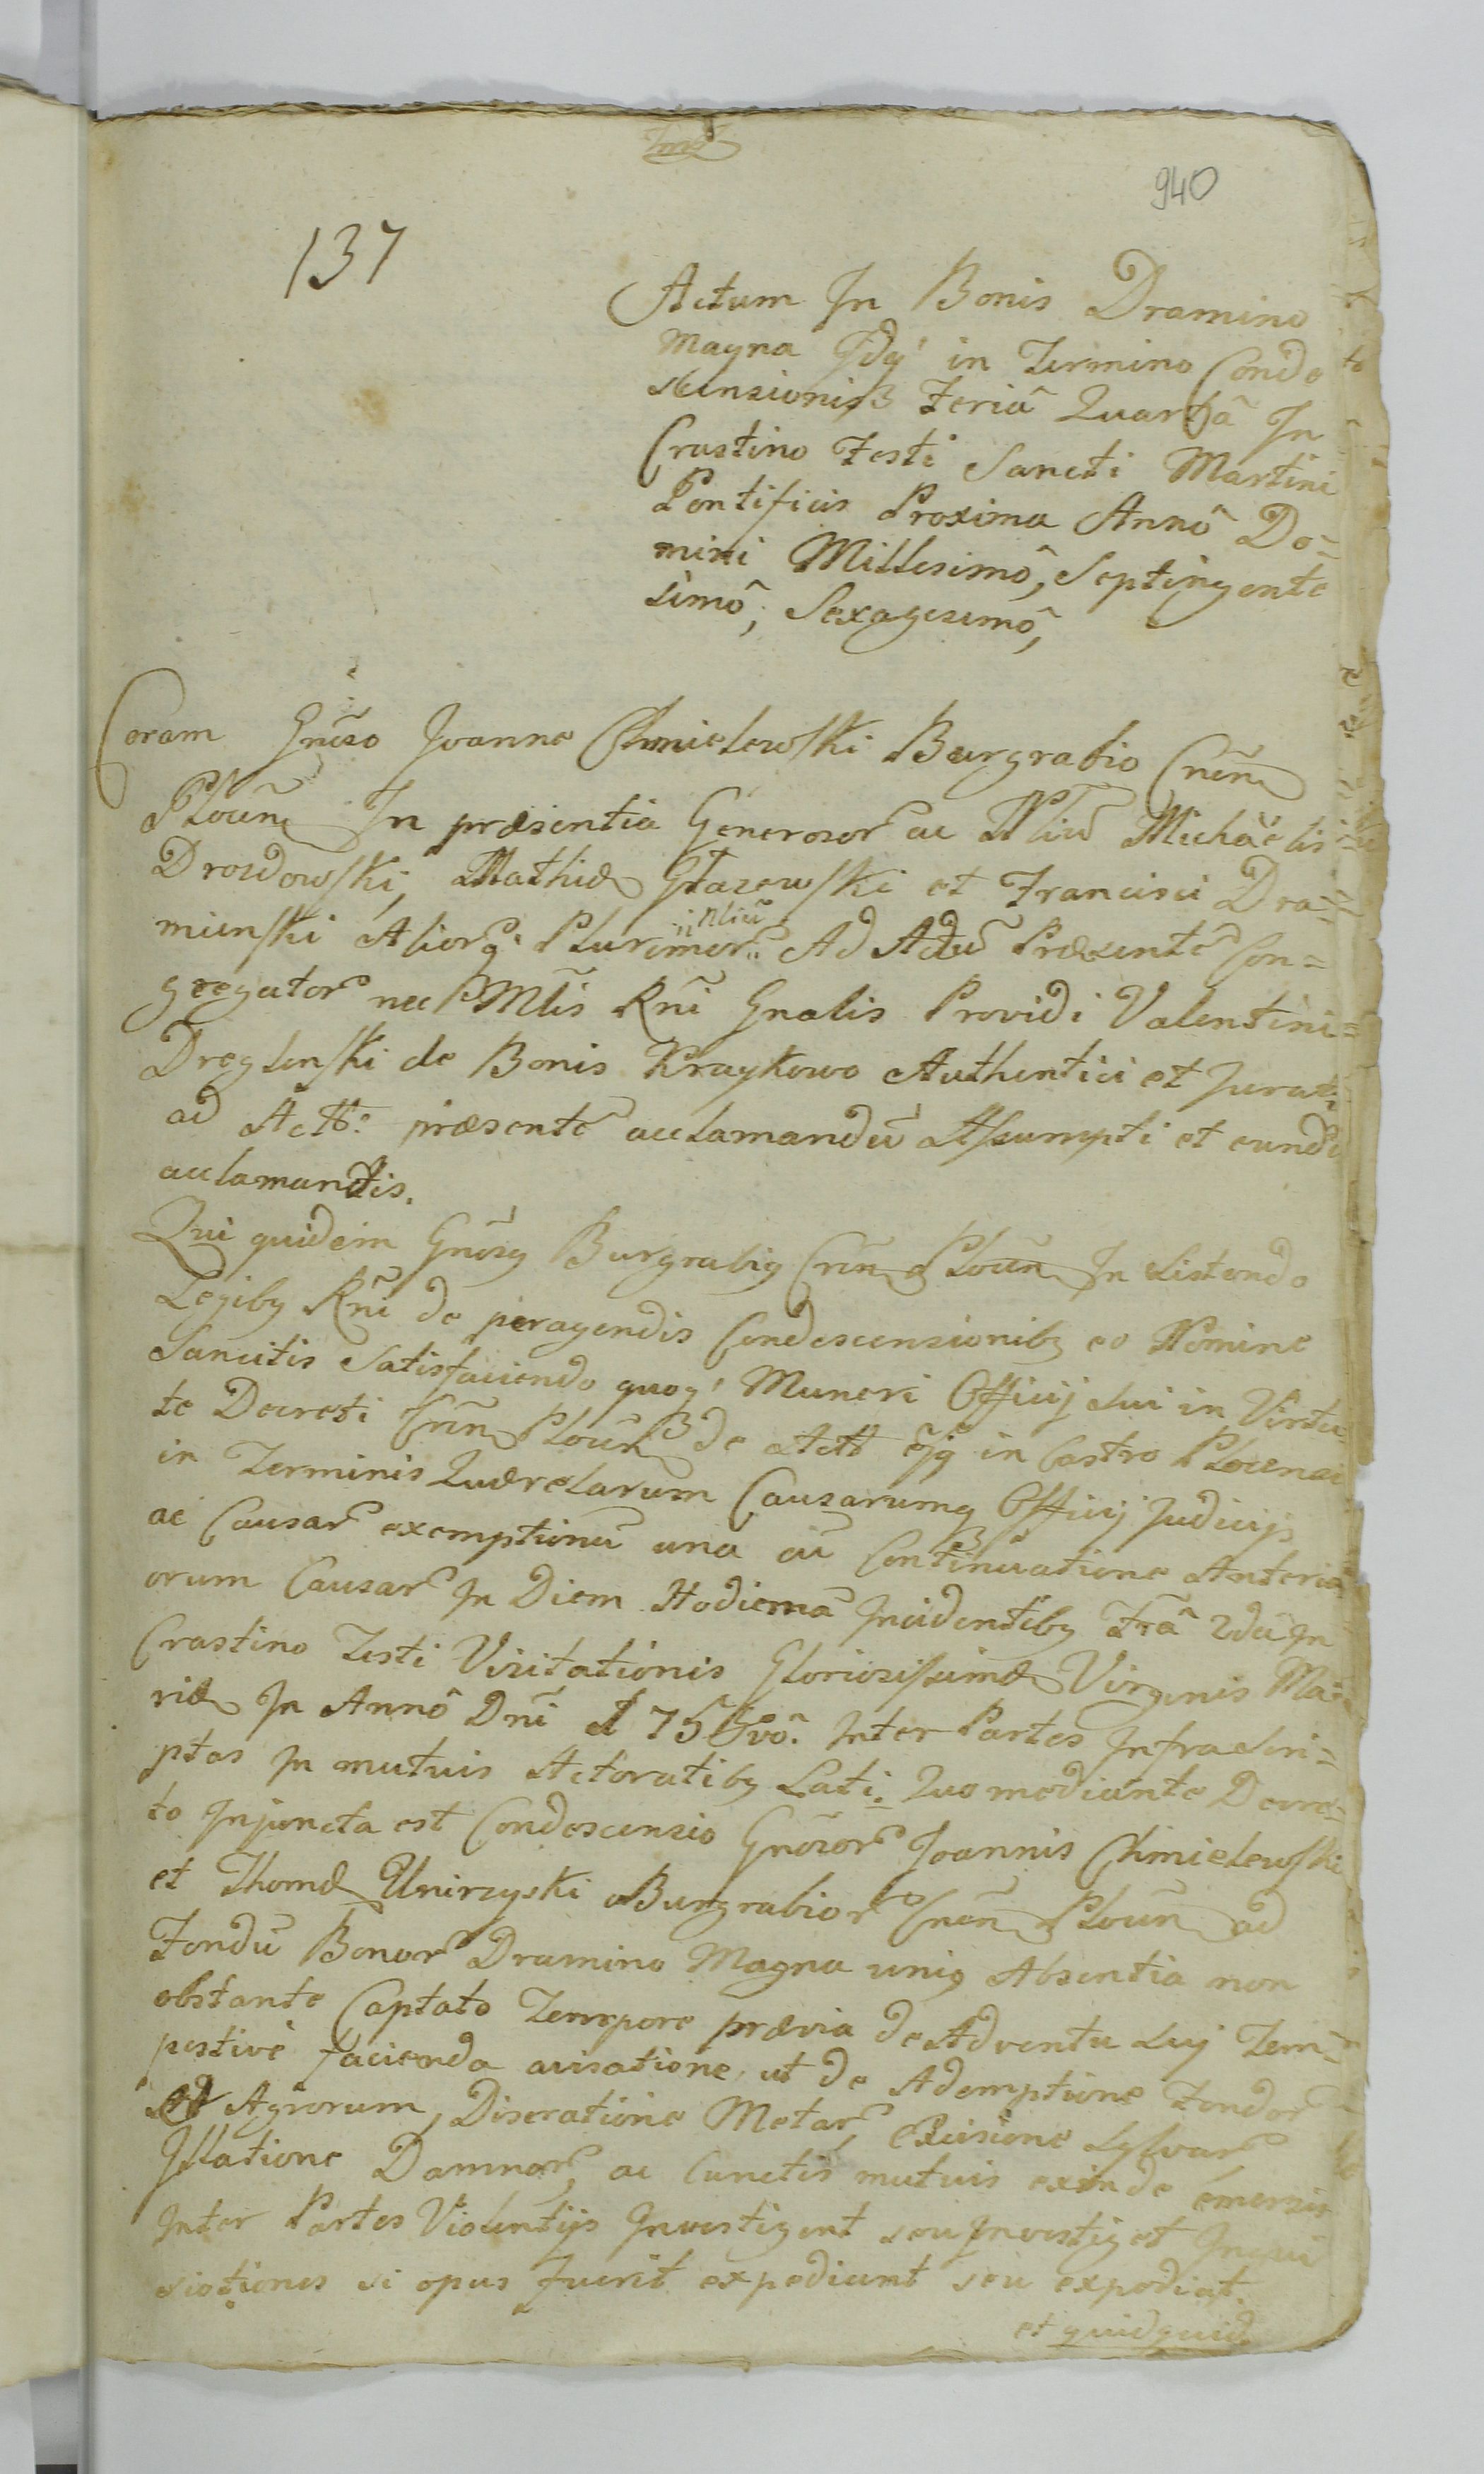 940
137
Actum In Bonis Dramino
Magna Idq' in Termino Conde
scensionis Feriâ Quartâ In
Crastino Festi Sancti Martini
Pontificis Proxima Annô Do=
mini Millesimô, Septingente
simô, Sexagesimô,
Coram Gnẽso Joanne Chmielewski Burgrabio Cnẽn
Ploceñ In præsentia Generosor ac Nliũ Michäelis
Drozdowski, Mathiæ Głazewski et Francisci Dra=
minski Aliorq. Plurimor Nliũ Ad Actũ Præsentẽ Con=
gregator nec Mtis Rñi Gnalis Providi Valentini
Dreglenski de Bonis Kraykowo Authentici et Jurati
ad Actt: præsentẽ acclamandũ Assumpti et eundẽ
acclamantis.
Qui quidem Gnõsq Burgrabiq Crẽn Ploceñ In sistendo
Legibq Rñi de peragendis Condescensionibq eo Nomine
Sancitis Satisfaciendo quoq' Muneri Officij sui in Virtu
te Decreti Crẽn Ploceñ de Actt ejq in Castro Plocensi
in Terminis Quærelarum Causarumq Officij Judicijs
ac Causar exemptionũ una cũ Continuatione Anteri
orum Causar In Diem Hodiernã Incidentibq Frã 2dâ In
Crastino Festi Visitationis Gloriosissimæ Virginis Ma=
riæ In Annô Dñi 1758vô. Inter Partes Infrascri=
ptas In mutuis Actoratibq Lati. Quo mediante Decre=
to Injuncta est Condescensio Gnõsor Joannis Chmielewski
et Thomæ Unirzyski Burgrabior Cnẽn Ploceñ ad
Fondũ Bonor Dramino Magna uniq Absentia non
obstante Captato Tempore prævia de Adventu sui Tem=
pestivè facienda avisatione, ut de Ademptione Fondor
Agrorum, Diseratione Metar, Excisione Sylvar
Illatione Damnor, ac Cunctis mutuis exinde emersis
Inter Partes Violentijs Investigent seu Investiget Inqui
sitiones si opus fuerit expediant seu expediat.
et quidquid